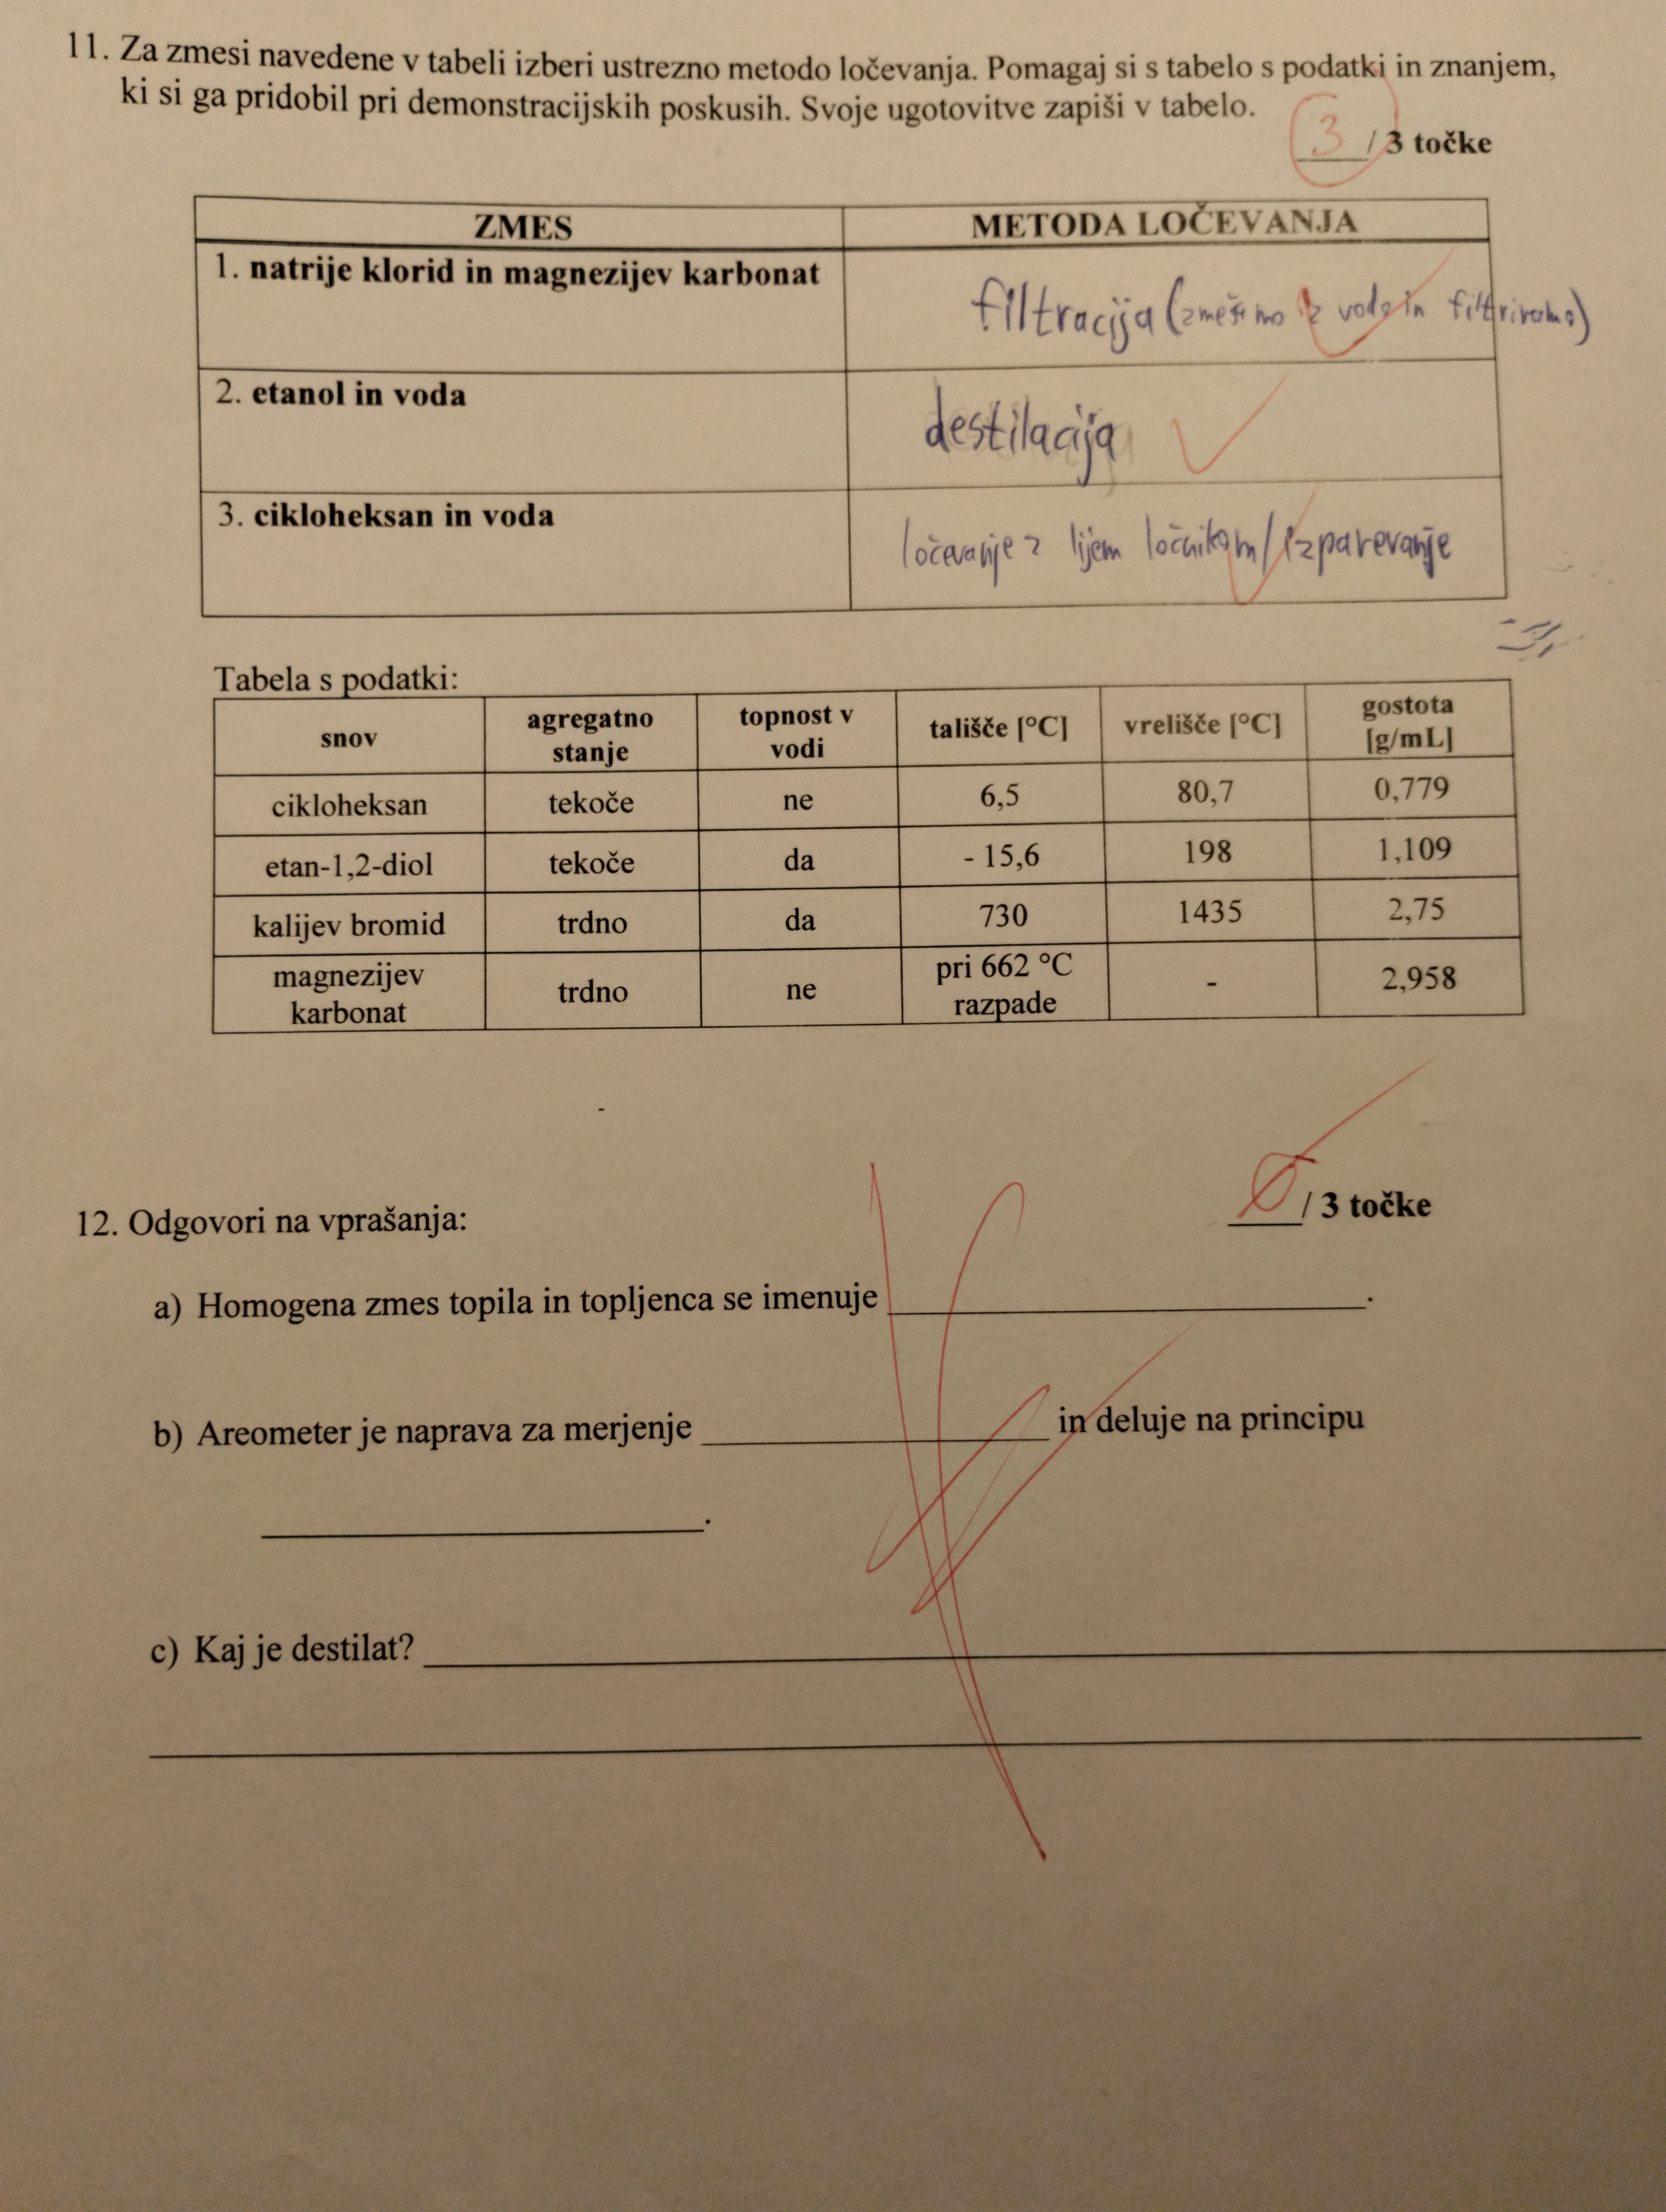 11. Za zmesi navedene v tabeli izberi ustrezno metodo ločevanja. Pomagaj si s tabelo s podatki in znanjem,
ki si ga pridobil pri demonstracijskih poskusih. Svoje ugotovitve zapiši v tabelo.
3 / 3 točke
ZMES METODA LOČEVANJA
1. natrije klorid in magnezijev karbonat filtracija (zmešamo z vodo in filtriramo)
2. etanol in voda destilacija
3. cikloheksan in voda ločevanje z lijem ločnikom/izparevanje
Tabela s podatki:
snov agregatno stanje topnost v vodi tališče [°C] vrelišče [°C] gostota [g/mL]
cikloheksan tekoče ne 6,5 80,7 0,779
etan-1,2-diol tekoče da - 15,6 198 1,109
kalijev bromid trdno da 730 1435 2,75
magnezijev karbonat trdno ne pri 662 °C razpade - 2,958
0 / 3 točke
12. Odgovori na vprašanja:
a) Homogena zmes topila in topljenca se imenuje ____.
b) Areometer je naprava za merjenje ____ in deluje na principu
____.
c) Kaj je destilat? ____